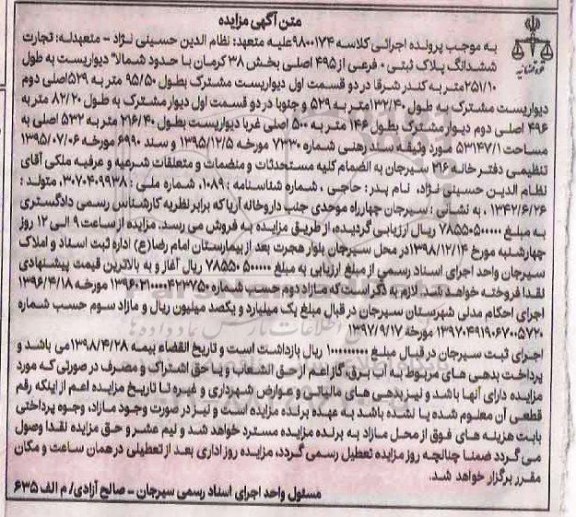 متن آگهی مزایده
به موجب پرونده اجرائی کلاسه ۹۸۰۰۱۷۴ علیه متعهد: نظام الدین حسینی نژاد - متعهدله: تجارت
ششدانگ پلاک ثبتی ۰ فرعی از ۴۹۵ اصلی بخش ۳۸ کرمان با حدود شمالا" دیواریست به طول
۲۵۱/۱۰ متر به کندر شرقا در دو قسمت اول دیواریست مشترک بطول ۹۵/۵۰ متر به ۵۲۹ اصلی دوم
دیواریست مشترک به طول ۱۳۲/۴۰ متر به ۵۲۹ و جنوبا در دو قسمت اول دیوار مشترک به طول ۸۲/۲۰ متر به
۴۹۶ اصلی دوم دیوار مشترک بطول ۱۴۶ متر به ۵۰۰ اصلی غربا دیواریست بطول ۲۱۶/۴۰ متر به ۵۳۲ اصلی به
مساحت ۵۳۱۴۷/۱ مورد وثیقه سند رهنی شماره ۷۳۳۰ مورخه ۱۳۹۵/۱۲/۵ و سند ۶۹۹۰ مورخه ۱۳۹۵/۰۷/۰۶
تنظیمی دفترخانه ۲۱۶ سیرجان به انضمام کلیه مستحدثات و منضمات و متعلقات شرعیه و عرفیه ملکی آقای
نظام الدین حسینی نژاد، نام پدر: حاجی ، شماره شناسنامه: ۱۰۸۹، شماره ملی : ۳۰۷۰۴۰۹۹۳۸، متولد :
۱۳۴۲/۶/۲۶ ، به نشانی : سیرجان چهارراه موحدی جنب داروخانه آریا که برابر نظریه کارشناس رسمی دادگستری
به مبلغ ۷۸۵۵۰۵۰۰۰۰۰ ریال ارزیابی گردیده، از طریق مزایده به فروش می رسد. مزایده از ساعت ۹ الی ۱۲ روز
چهارشنبه مورخ ۱۳۹۸/۱۲/۱۴ در محل سیرجان بلوار هجرت بعد از بیمارستان امام رضا(ع) اداره ثبت اسناد و املاک
سیرجان واحد اجرای اسناد رسمی از مبلغ ارزیابی به مبلغ ۷۸۵۵۰۵۰۰۰۰۰ ریال آغاز و به بالاترین قیمت پیشنهادی
نقدا فروخته خواهد شد. لازم به ذکر است که مازاد دوم حسب شماره مورخه ۱۳۹۶/۴/۱۸
اجرای احکام مدنی شهرستان سیرجان در قبال مبلغ یک میلیارد و یکصد میلیون ریال و مازاد سوم حسب شماره
۱۳۹۷۰۴۹۱۹۰۶۷۰۰۵۷۲۰ مورخه ۱۳۹۷/۹/۱۷
اجرای ثبت سیرجان در قبال مبلغ ریال بازداشت است و تاریخ انقضاء بیمه ۱۳۹۸/۴/۲۸ می باشد و
پرداخت بدهی های مربوط به آب، برق، گاز اعم از حق انشعاب و یا حق اشتراک و مصرف در صورتی که مورد
مزایده دارای آنها باشد و نیز بدهی های مالیاتی و عوارض شهرداری و غیره تا تاریخ مزایده اعم از اینکه رقم
قطعی آن معلوم شده یا نشده باشد به عهده برنده مزایده است و نیز در صورت وجود مازاد، وجوه پرداختی
بابت هزینه های فوق از محل مازاد به برنده مزایده مسترد خواهد شد و نیم عشر و حق مزایده نقدا وصول
می گردد ضمنا چنانچه روز مزایده تعطیل رسمی گردد، مزایده روز اداری بعد از تعطیلی در همان ساعت و مکان
مقرر برگزار خواهد شد.
مسئول واحد اجرای اسناد رسمی سیرجان - صالح آزادی/ م الف ۶۳۵